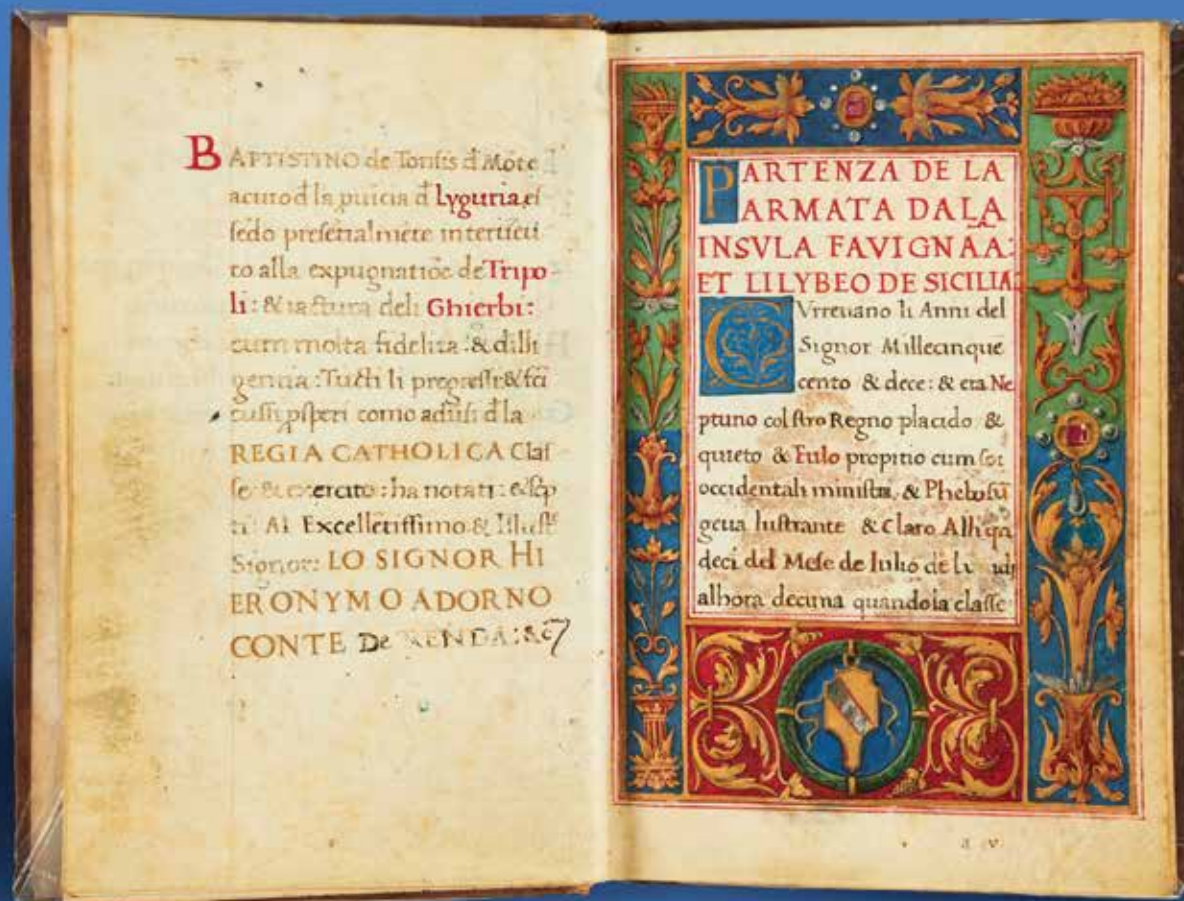 BAPTISTINO de Tonsis d Mōte
acuto d la puicia d Lyguria: eſ
ſēdo preſētialmēte interueū
to alla expugnatiōe de Tripo
li: & iactura deli Ghierbi:
cum molta fidelita: & dilli
gentia: Tucti li progreſſi: & ſcī
cuſſi pſperi como aduſi d la
REGIA CATHOLICA Claſ
ſe & exercito: ha notati: &
Al Excellētiſſimo & Illuſt
Signor: LO SIGNOR HI
ERONYMO ADORNO
CONTE De RENDA: &c
PARTENZA DE LA
ARMATA DALA
INSVLA FAVIGNĀA:
ET LILYBEO DE SICILIA:
CVrreuano li Anni del
Signor Millecinque
cento & dece: & era Ne
ptuno col ſtro Regno placido &
quieto & Eulo propitio cum ſoi
occidentali miniſtri, & Phebo ſū
geua luſtrante & Claro Alli
deci del Meſe de Iulio de
alhora decima quando la claſſe